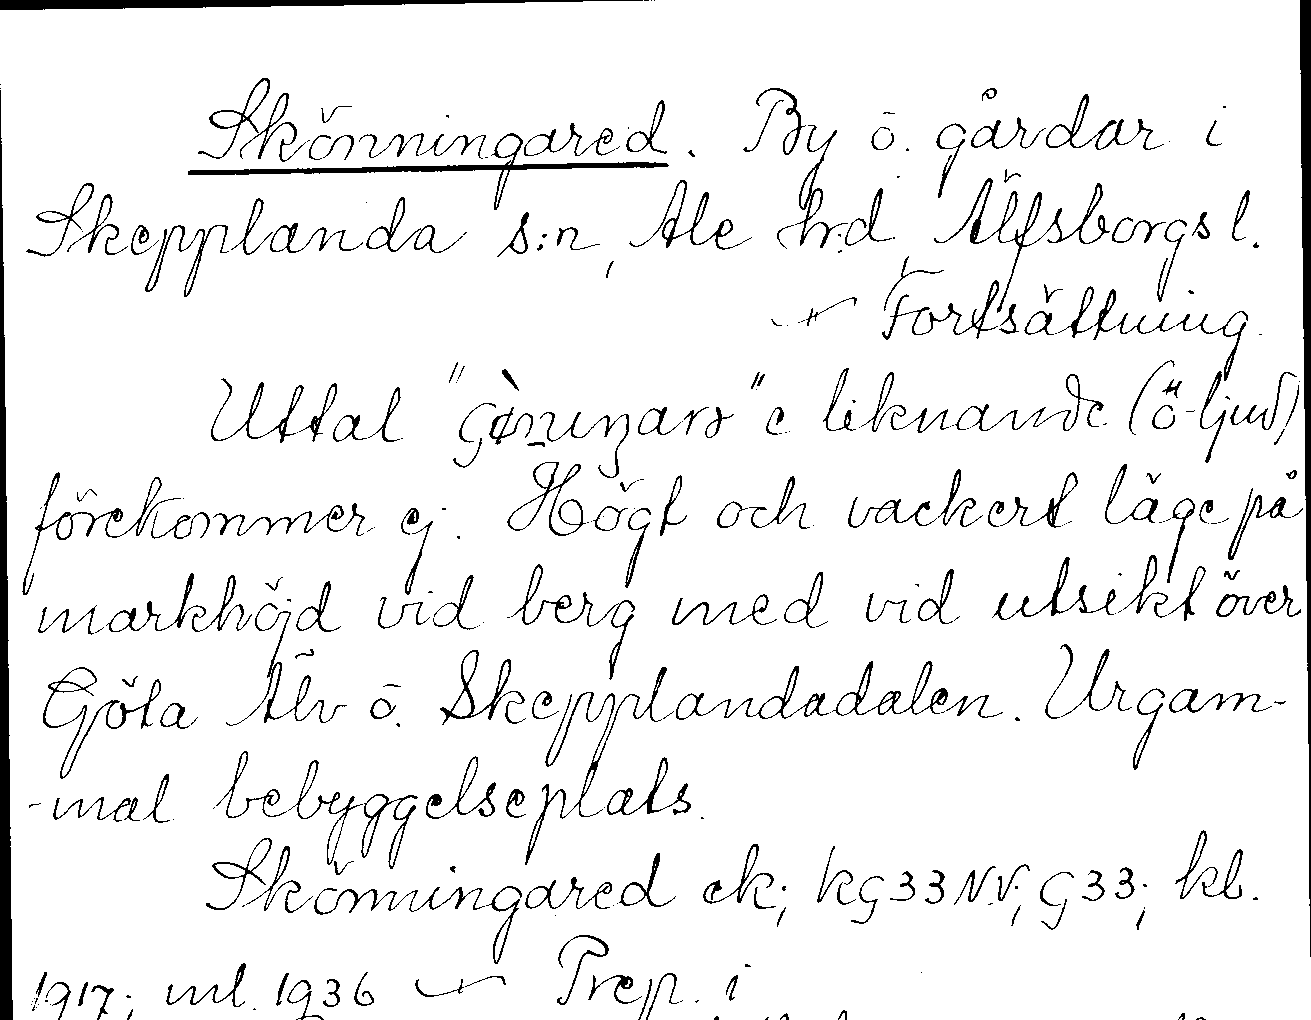 Skönningared. By o. gårdar i
Skepplanda s:n, Ale hrd, Älfsborgs l.
Fortsättning.
Uttal " " e liknande (ö-ljud)
förekommer ej. Högt och vackert läge på
markhöjd vid berg med vid utsikt över
Göta Älv o. Skepplandadalen. Urgam-
-mal bebyggelseplats.
Skönningared ek; kG33NV; G33; kb.
1917; ml. 1936 Prep. i